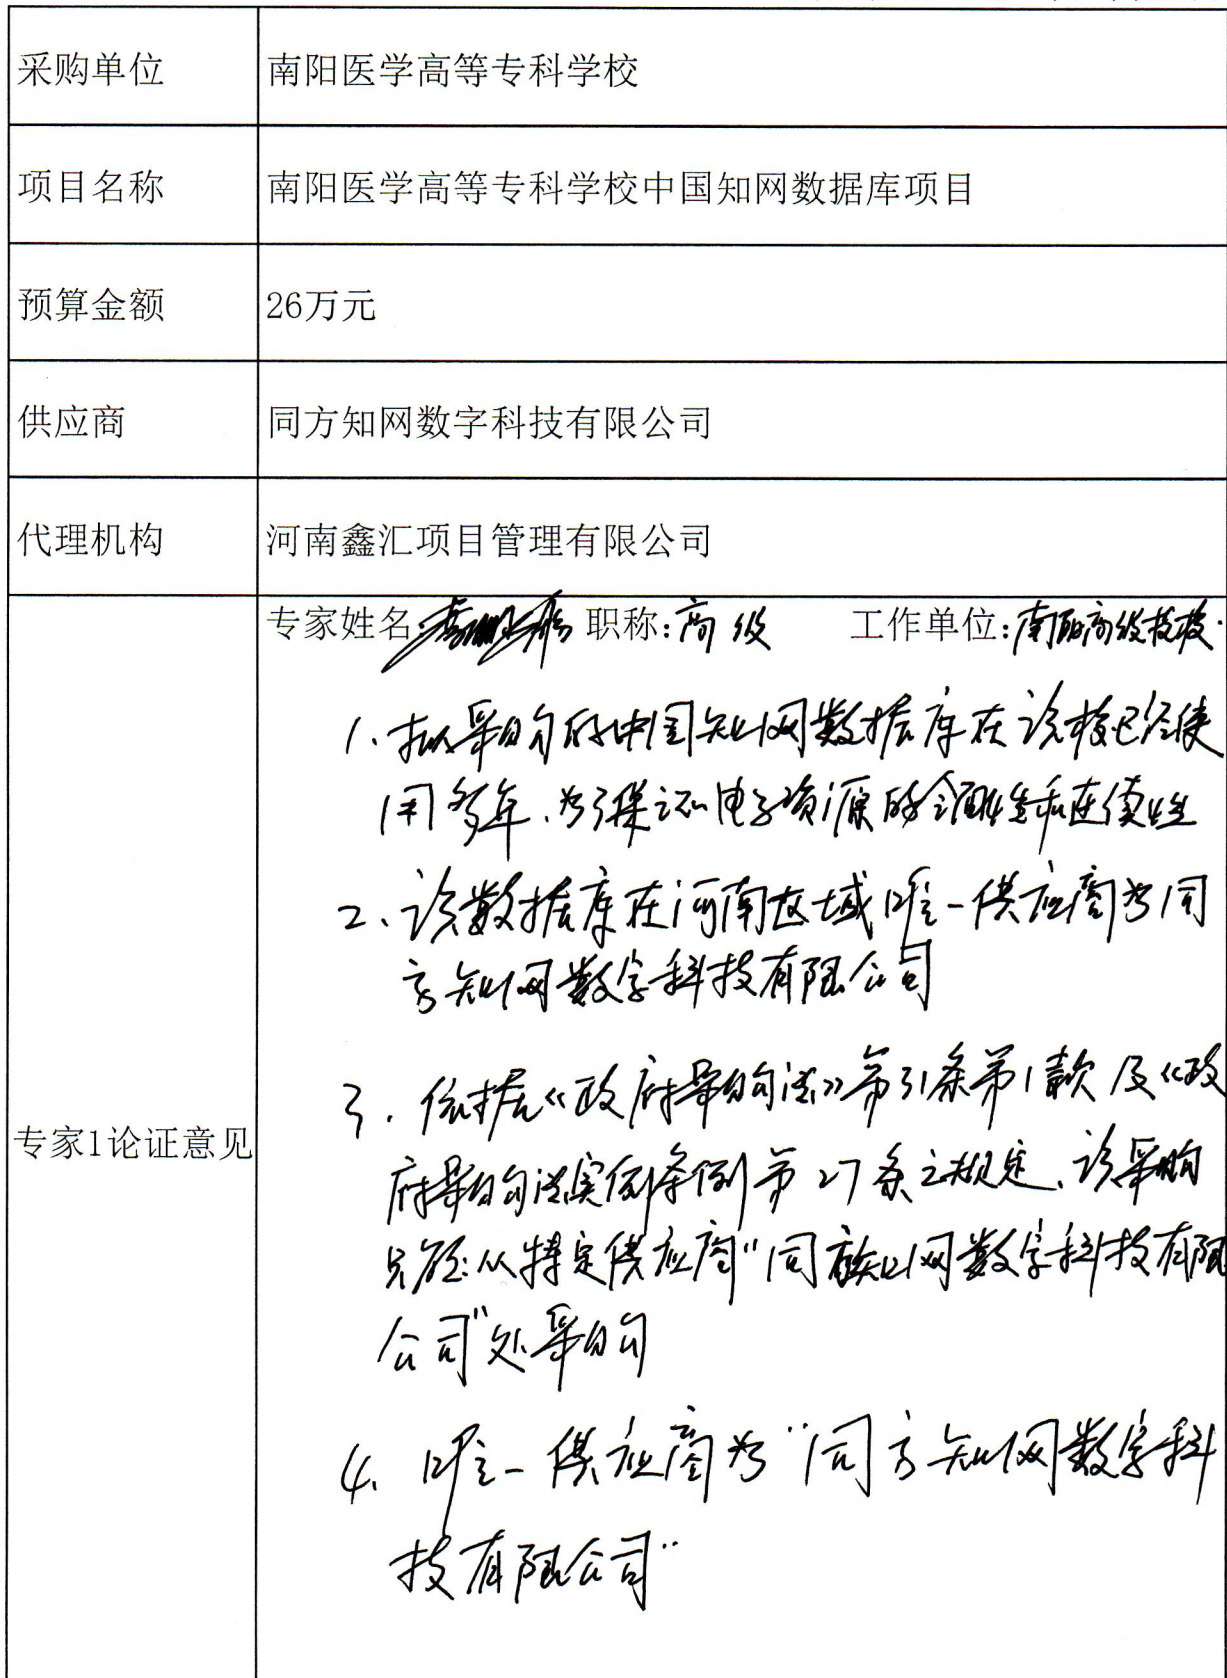 采购单位
南阳医学高等专科学校
项目名称
南阳医学高等专科学校中国知网数据库项目
预算金额
26万元
供应商
同方知网数字科技有限公司
代理机构
河南鑫汇项目管理有限公司
专家1论证意见
专家姓名: 职称:高级 工作单位:南阳高级技校.
1、拟采购的中国知网数据库在该校已经使
用多年、为了保证电子资源的全面性和连续性
2、该数据库在河南区域唯一供应商为同
方知网数字科技有限公司
3、依据《政府采购法》第31条第1款及《政
府采购法实例条例第27条之规定、该采购
只能从特定供应商"同方知网数字科技有限
公司"处采购
4、唯一供应商为"同方知网数字科
技有限公司"